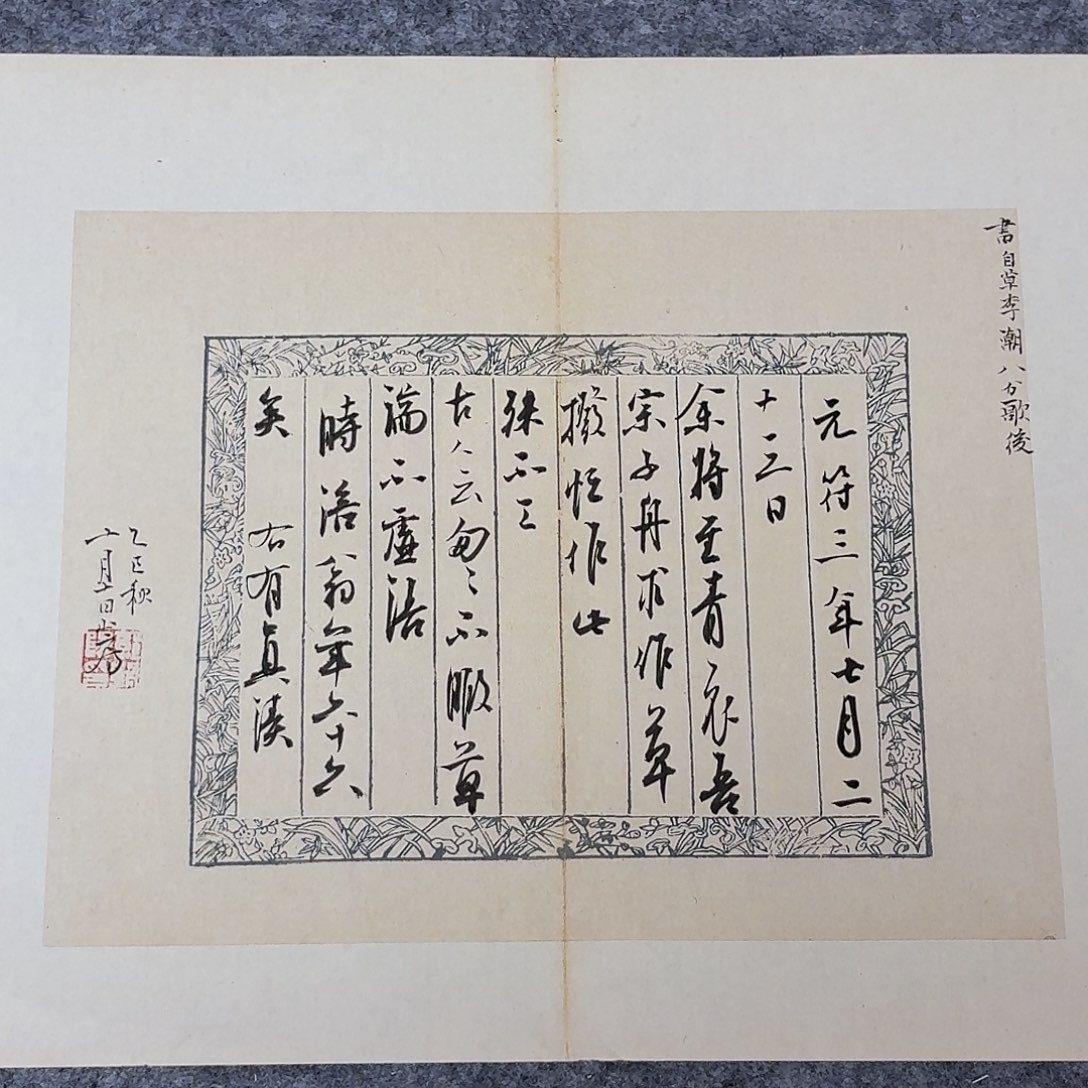 書自草李潮八分歌後
元符三年七月二
十三日
余將至青衣吾
宗子舟求作草
撥忙作此
殊不工
古人云匆匆不暇草
端不虛語
時涪翁年五十六
矣 右有真蹟
乙巳秋